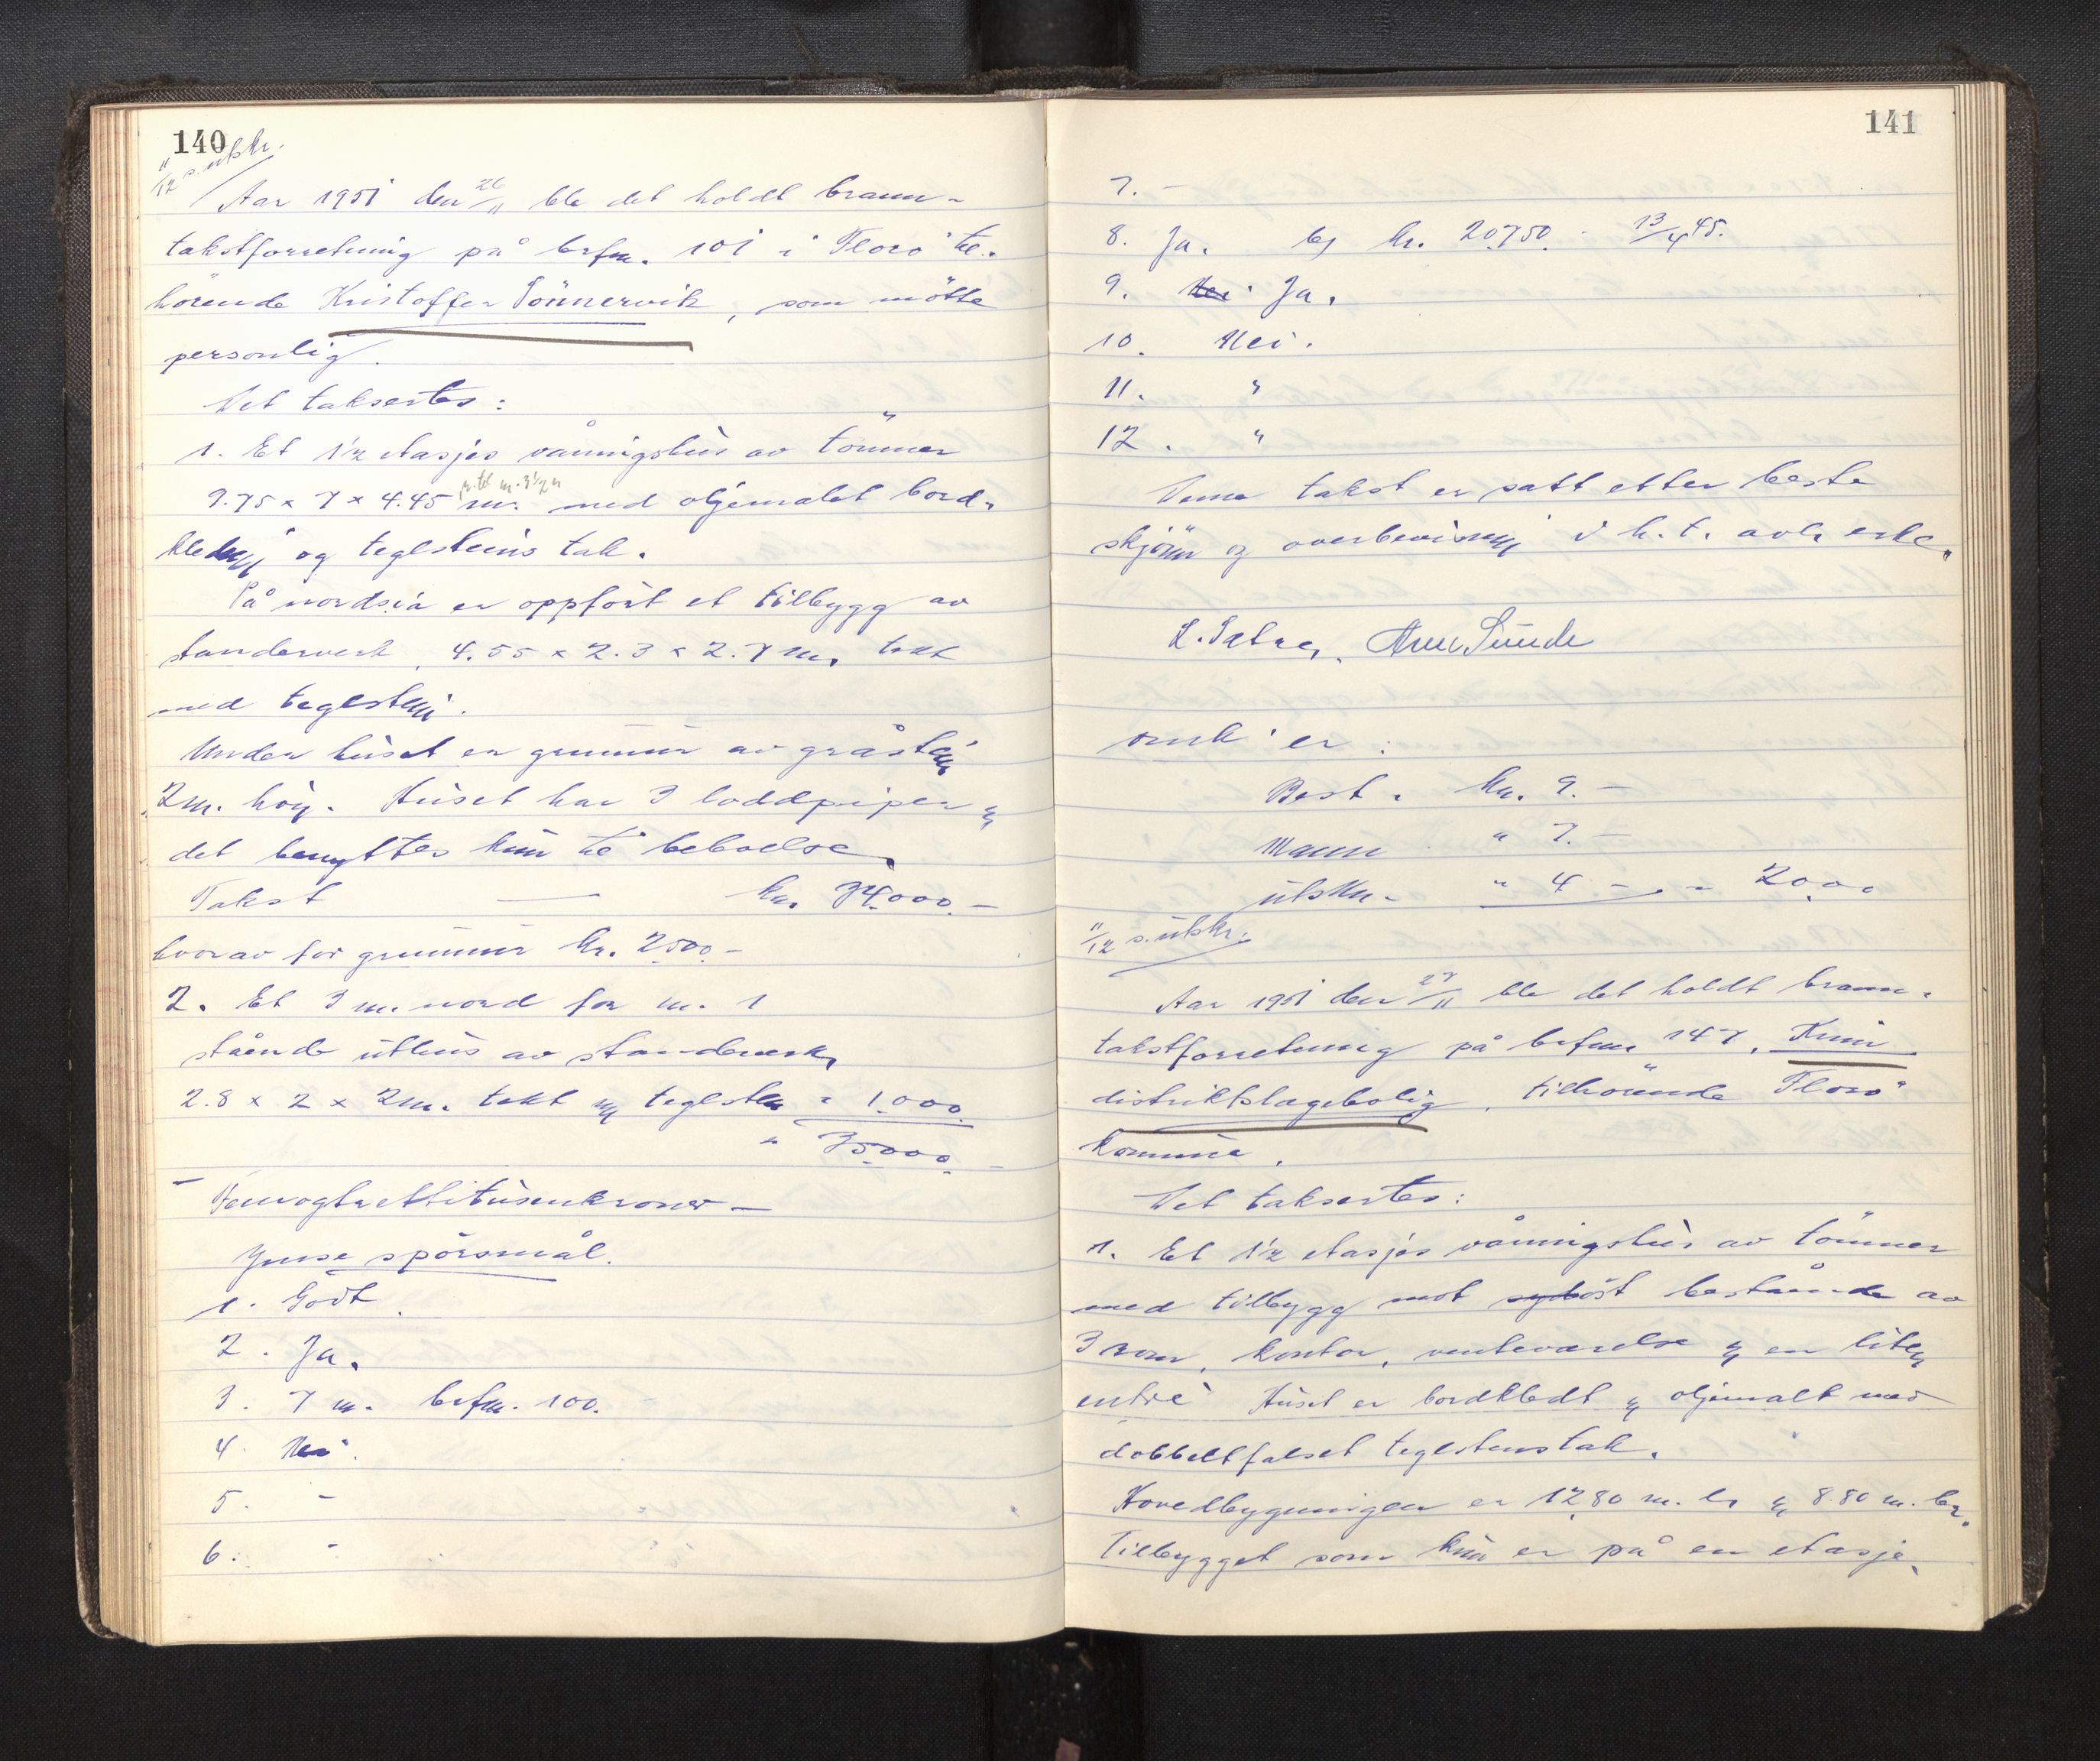 140
11/12 s. utskr.
Aar 1951 den 26/11 ble det holdt brann-
takstforretning på brfnr. 101 i Florö til-
hörende Kristoffer Tönnervik, som mötte
personlig.
Det taksertes:
1. Et 1½ etasjes våningshus av tömmer
9.75 x 7 x 4.45 m. med oljemalet bord-
kledning og teglsteins tak.
På nordsia er oppfört et tilbygg av
standerverk, 4.55 x 2.3 x 2.7 m. tekt
med teglstein.
Under huset er grunnmur av gråstein
2 m. höy. Huset har 3 loddpiper og
det benyttes kun til beboelse.
Takst — kr. 34.000.-
hvorav for grunnmur kr. 2500.-
2. Et 3 m. nord for nr. 1
stående uthus av standerverk,
2.8 x 2 x 2 m. tekt m/ teglsten " 1.000.
" 35.000.-
- Femogtrettitusenkroner -
Ymse spörsmål.
1. Godt.
2. Ja.
3. 7 m. brfnr. 100.
4. Nei.
5. -
6. -
141
7. -
8. Ja. bg kr. 20.750.- 13/4 45.
9. Nei Ja.
10. Nei.
11. "
12. "
Denne takst er satt etter beste
skjönn og overbevisning i h. t. avlagt
L. Sætre, Arne Sunde
omk er:
Best. kr. 9.-
Mann " 7.-
utskr. " 4 - = 20.00
11/12 s. utskr.
Aar 1951 den 27/11 ble det holdt brann-
takstforretning på brfnr 147, Kinn
distriktslægebolig, tilhörende Florö
kommune.
Det taksertes:
1. Et 1½ etasjes våningshus av tömmer
med tilbygg mot sydöst bestående av
3 rom, kontor, venteværelse og en liten
entré Huset er bordkledt og oljemalt med
dobbeltfalset teglstenstak.
Hovedbygningen er 12.80 m. lg og 8.80 m. br.
Tilbygget som kun er på en etasje,